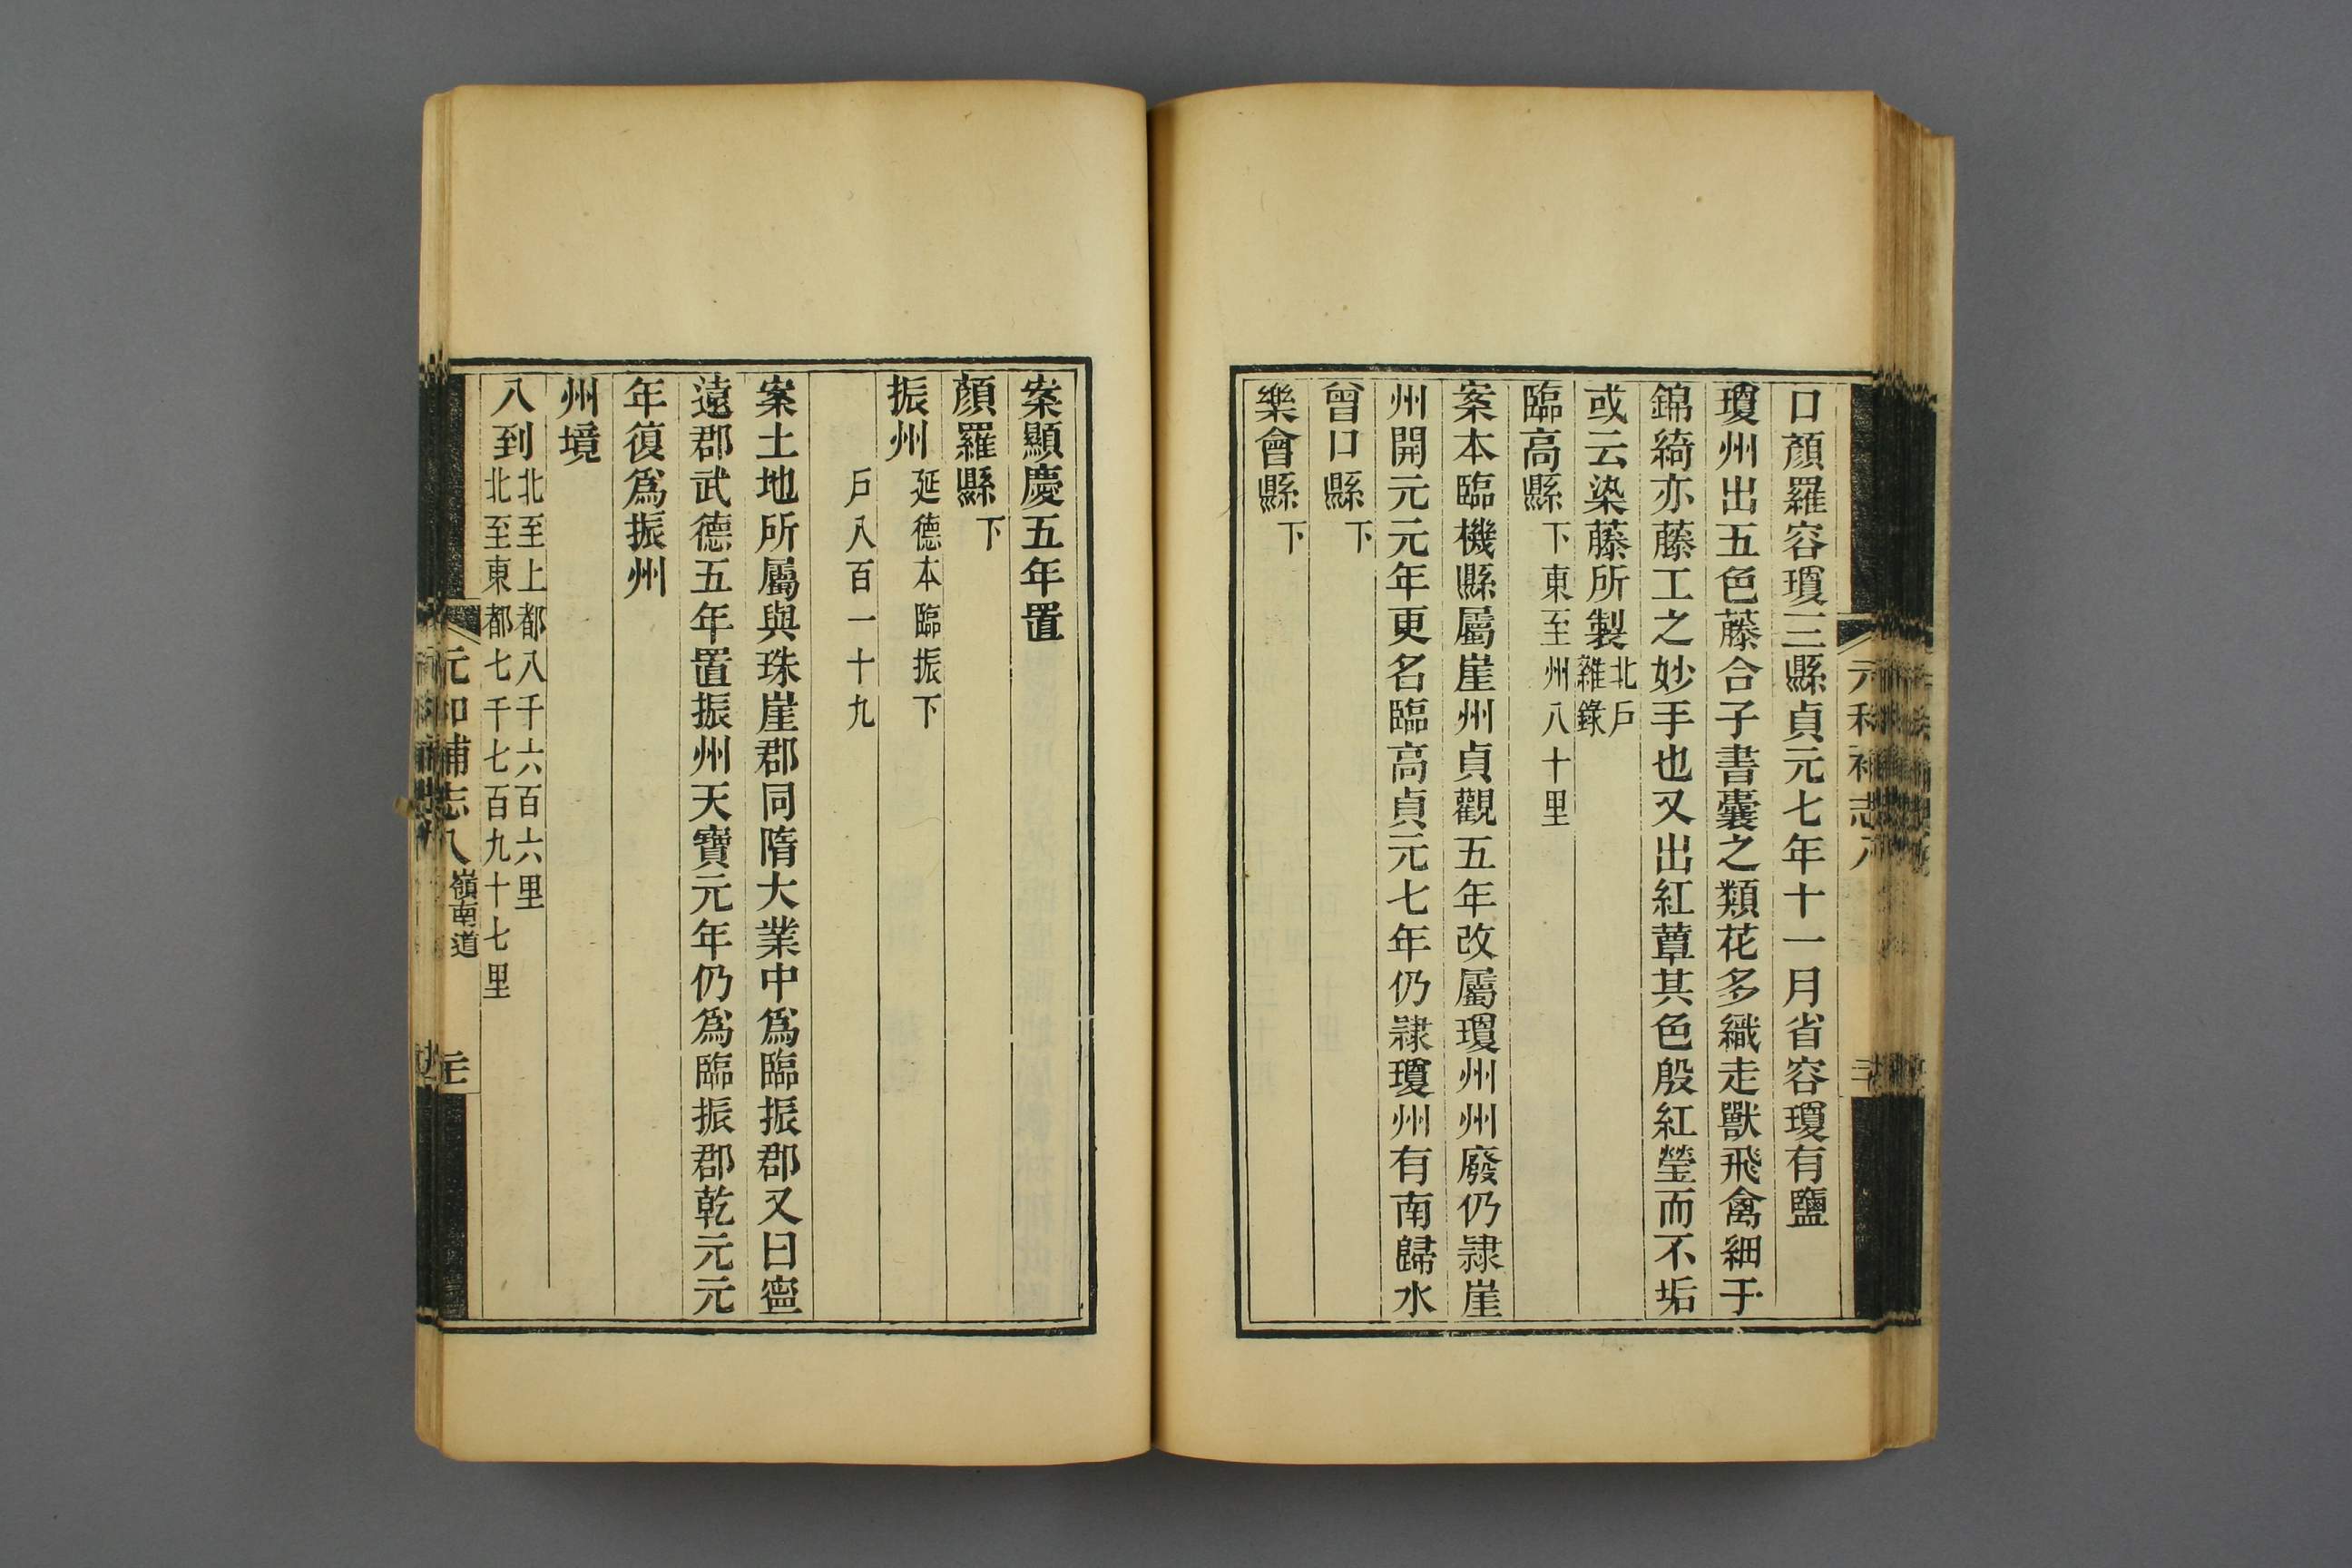 口顏羅容瓊三縣貞元七年十一月省容瓊有鹽
瓊州出五色藤合子書囊之類花多織走獸飛禽細于
錦綺亦藤工之妙手也又出紅蕈其色殷紅瑩而不垢
或云染藤所製北戶
雜錄
臨高縣下東至州八十里
案本臨機縣屬崖州貞觀五年改屬瓊州州廢仍隷崖
州開元元年更名臨高貞元七年仍隷瓊州有南歸水
曾口縣下
樂會縣下
案顯慶五年置
顏羅縣下
振州延德本臨振下
戶八百一十九
案土地所屬與珠崖郡同隋大業中為臨振郡又曰寧
遠郡武德五年置振州天寶元年仍為臨振郡乾元元
年復為振州
州境
八到北至上都八千六百六里
北至東都七千七百九十七里
元和補志八 嶺南道